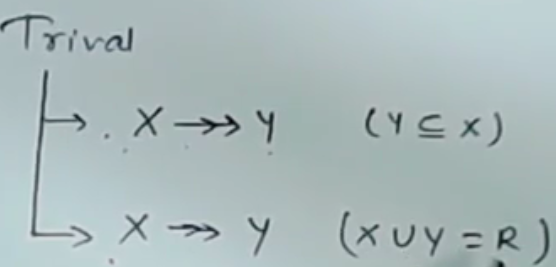 Trival
X ↠ Y (Y ⊆ X)
X ↠ Y (X ∪ Y = R)